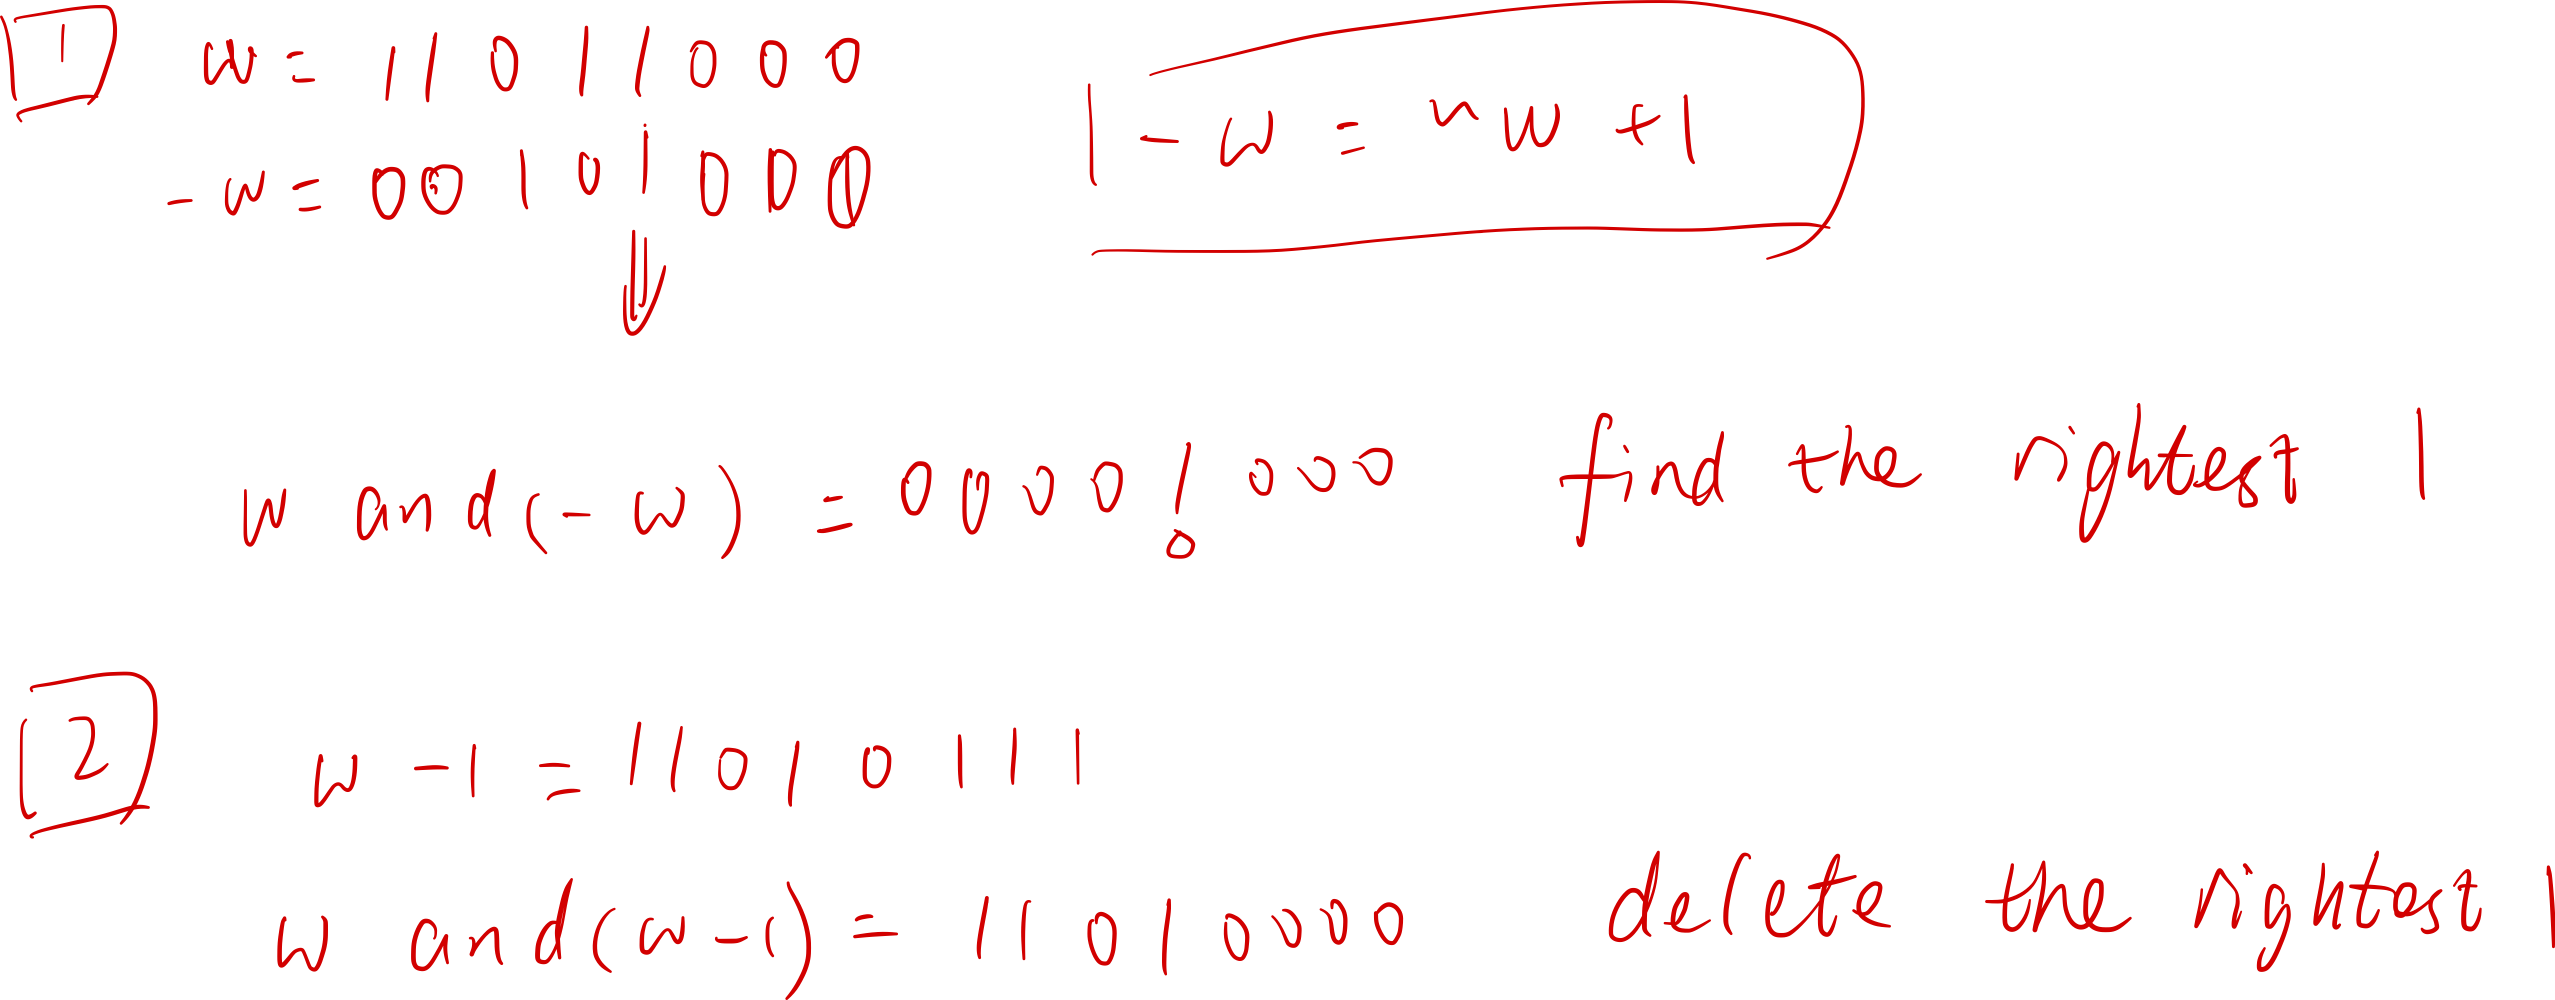 1 w = 11011000
-w = 00101000
-w = ~w + 1
w and (-w) = 00001000 find the rightest 1
2 w - 1 = 11010111
w and (w - 1) = 11010000 delete the rightest 1